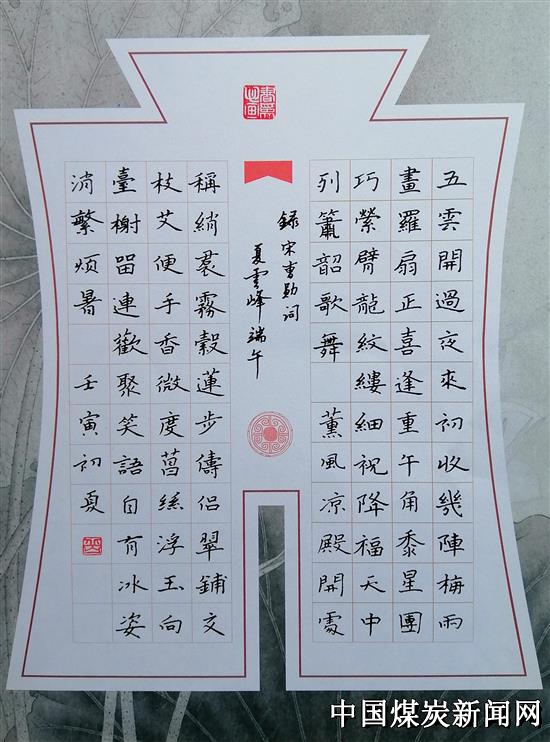 五雲開過夜來初收幾陣梅雨
畫羅扇正喜逢重午角黍星團
巧縈臂龍紋縷細祝降福天中
列簫韶歌舞 薰風凉殿開處
錄宋曹勛詞
夏雲峰端午
稱綃裠霧縠蓮步儔侶翠鋪交
枝艾便手香微度菖絲浮玉向
臺榭留連歡聚笑語自有冰姿
消繁煩暑 壬寅初夏
中国煤炭新闻网